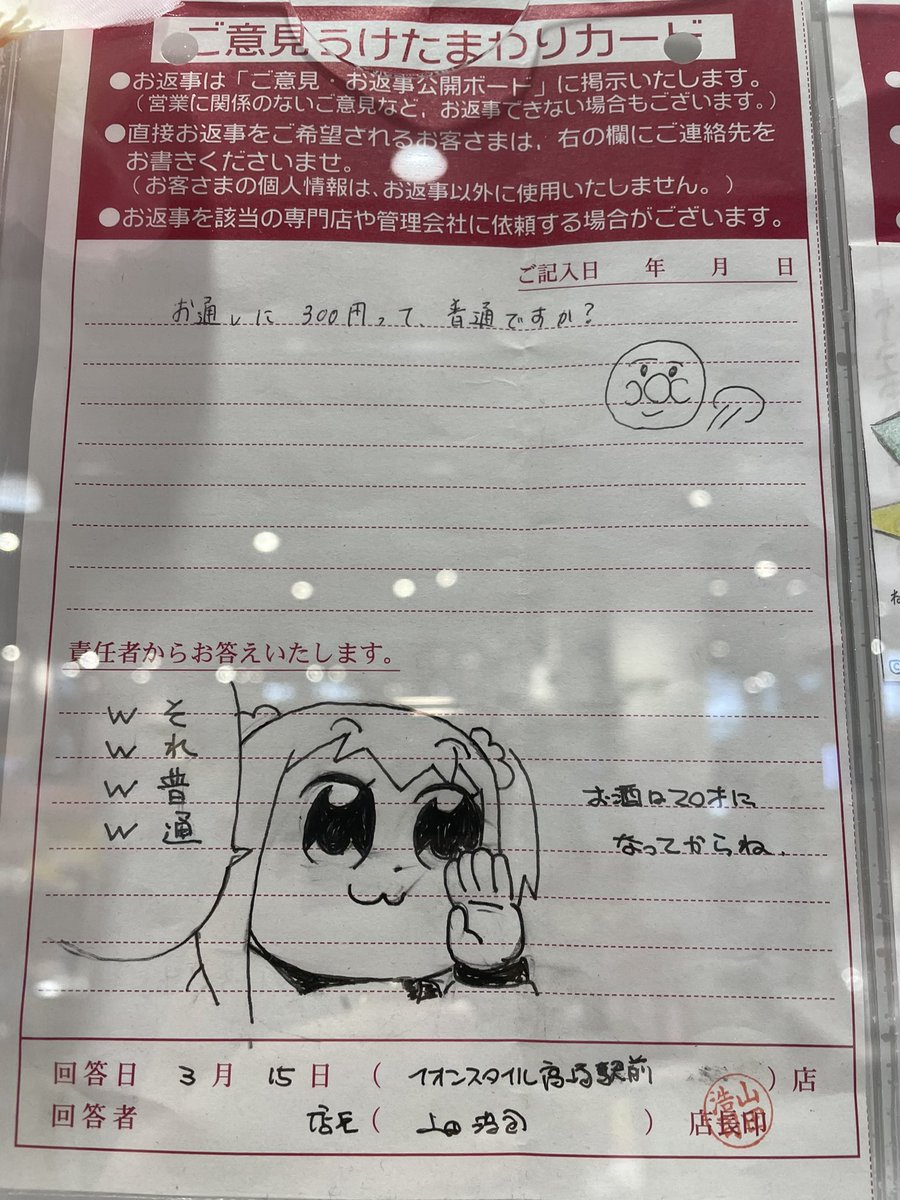 ご意見うけたまわりカード
●お返事は「ご意見・お返事公開ボード」に掲示いたします。
（営業に関係のないご意見など、お返事できない場合もございます。）
●直接お返事をご希望されるお客さまは、右の欄にご連絡先を
お書きくださいませ。
（お客さまの個人情報は、お返事以外に使用いたしません。）
●お返事を該当の専門店や管理会社に依頼する場合がございます。
ご記入日　年　月　日
お通しに 300円って、普通ですか？
責任者からお答えいたします。
それ普通
wwww
お酒は20才に
なってからね、
回答日 3月 15日 （ イオンスタイル 駅前 ）店
回答者 店長（ 上田 ） 店長印